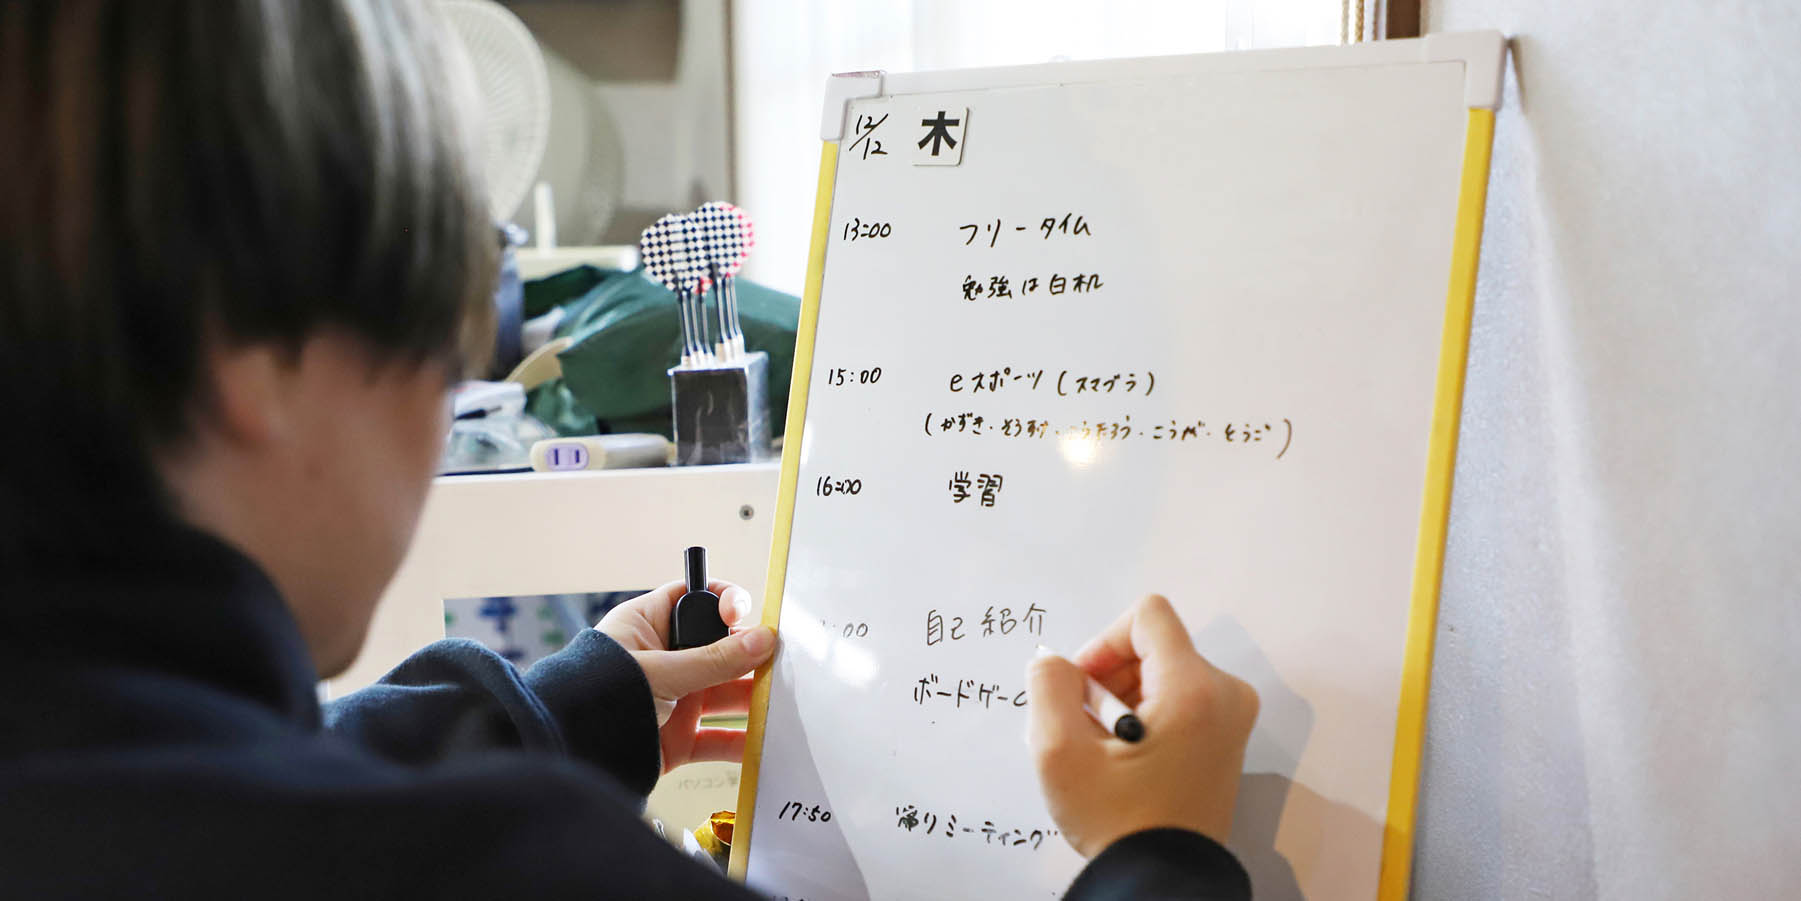 12/12 木
13:00 フリータイム
勉強は白机
15:00 eスポーツ(スマブラ)
(かずき・そうすけ・こうたろう・こうが・そうご)
16:00 学習
:00 自己紹介
ボードゲー
17:50 帰りミーティング